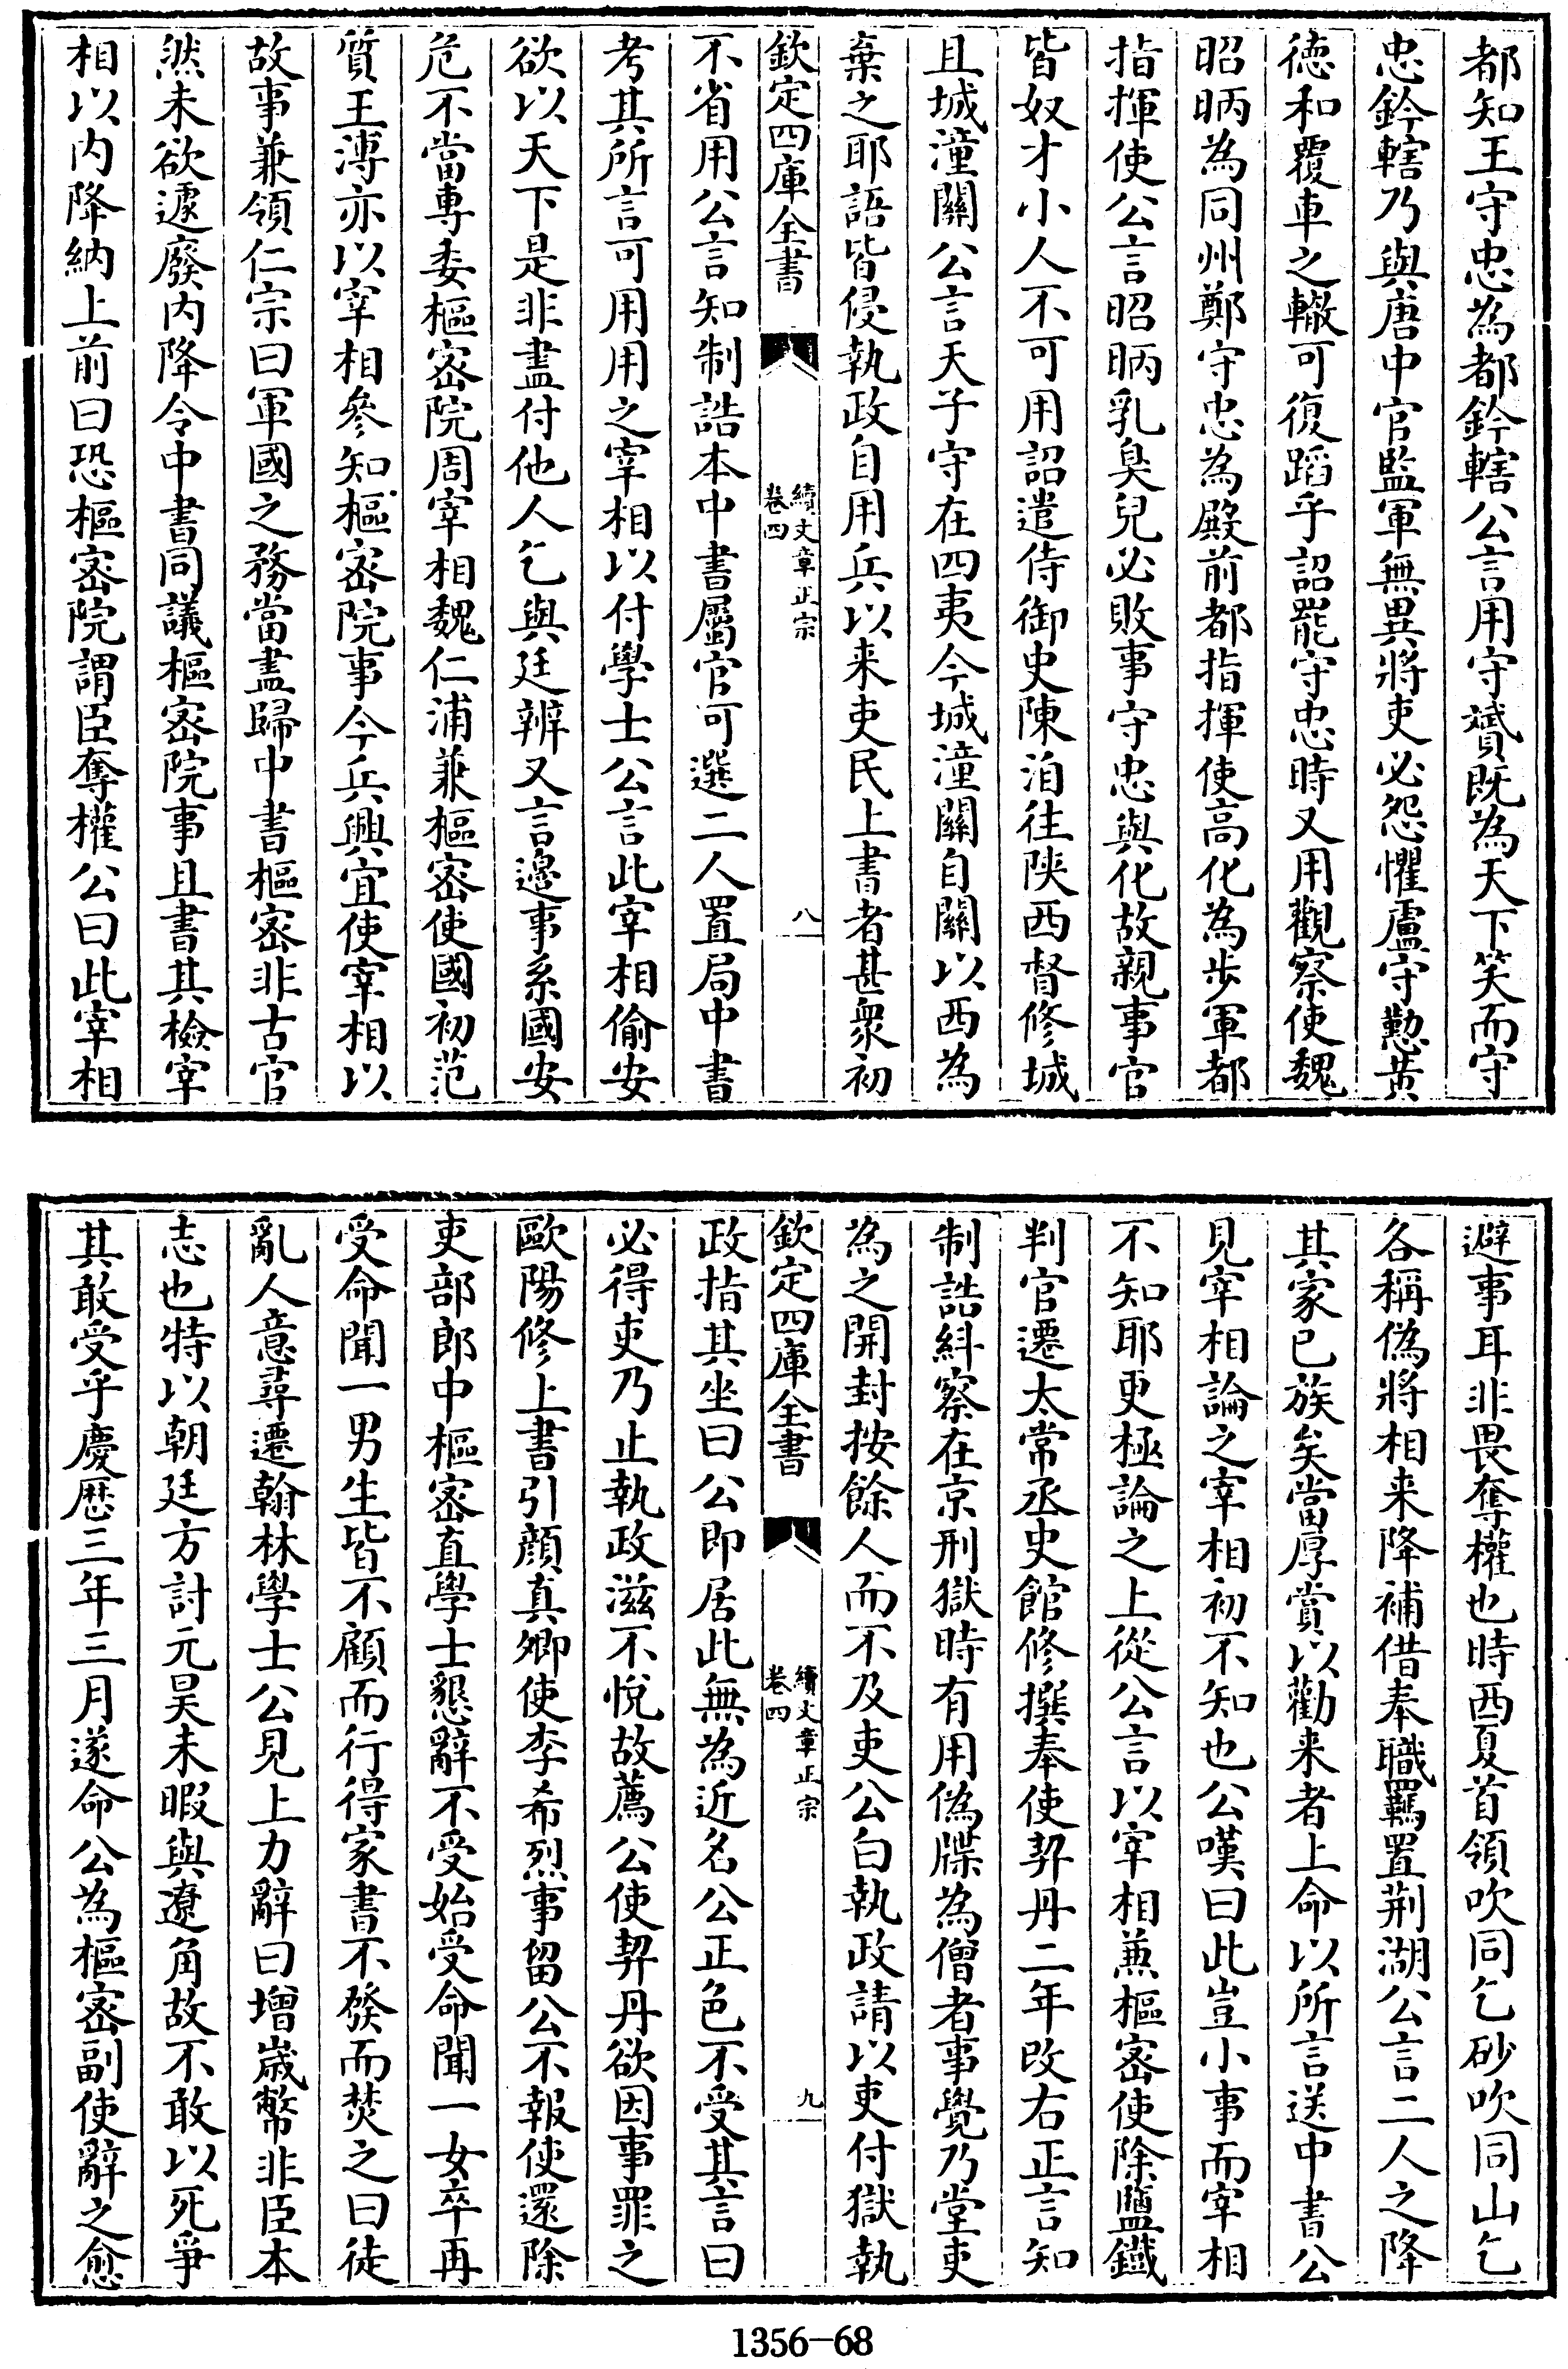 都知王守忠為都鈐轄公言用守贇既為天下笑而守
忠鈐轄乃與唐中官監軍無異將吏必怨懼盧守懃黄
徳和覆車之轍可復蹈乎詔罷守忠時又用觀察使魏
昭昞為同州鄭守忠為殿前都指揮使髙化為步軍都
指揮使公言昭昞乳臭兒必敗事守忠與化故親事官
皆奴才小人不可用詔遣侍御史陳洎往陜西督修城
且城潼關公言天子守在四夷今城潼關自關以西為
棄之耶語皆侵執政自用兵以來吏民上書者甚衆初
欽定四庫全書
續文章正宗
卷四
八
不省用公言知制誥本中書屬官可選二人置局中書
考其所言可用用之宰相以付學士公言此宰相偷安
欲以天下是非盡付他人乞與廷辨又言邊事系國安
危不當專委樞宻院周宰相魏仁浦兼樞宻使國初范
質王溥亦以宰相參知樞宻院事今兵興宜使宰相以
故事兼領仁宗曰軍國之務當盡歸中書樞宻非古官
然未欲遽廢内降令中書同議樞宻院事且書其檢宰
相以内降納上前曰恐樞宻院謂臣奪權公曰此宰相
避事耳非畏奪權也時西夏首領吹同乞砂吹同山乞
各稱偽將相来降補借奉職羈置荆湖公言二人之降
其家已族矣當厚賞以勸来者上命以所言送中書公
見宰相論之宰相初不知也公嘆曰此豈小事而宰相
不知耶更極論之上從公言以宰相兼樞宻使除鹽鐵
判官遷太常丞史館修撰奉使契丹二年改右正言知
制誥糾察在京刑獄時有用偽牒為僧者事覺乃堂吏
為之開封按餘人而不及吏公白執政請以吏付獄執
欽定四庫全書
續文章正宗
卷四
九
政指其坐曰公即居此無為近名公正色不受其言曰
必得吏乃止執政滋不悅故薦公使契丹欲因事罪之
歐陽修上書引顔真卿使李希烈事留公不報使還除
吏部郎中樞宻直學士懇辭不受始受命聞一女卒再
受命聞一男生皆不顧而行得家書不發而焚之曰徒
亂人意尋遷翰林學士公見上力辭曰增嵗幣非臣本
志也特以朝廷方討元昊未暇與遼角故不敢以死爭
其敢受乎慶厯三年三月遂命公為樞宻副使辭之愈
1356-68